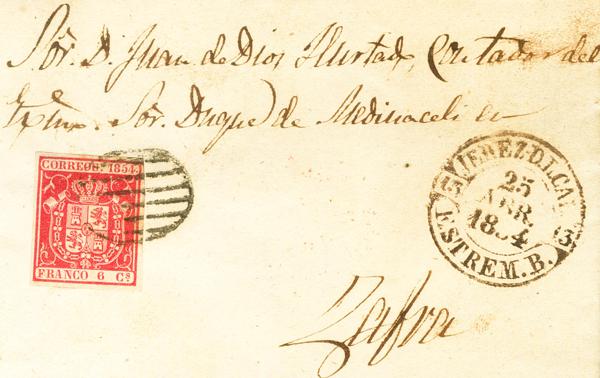 Sór. D. Juan de Dios Hurtado, Contador del
Exmo. Sór. Duque de Medinaceli en
CORREOS. 1854.
FRANCO 6 Cs.
JEREZ D.L.CA
25
ABR.
1854
ESTREM. B.
Zafra